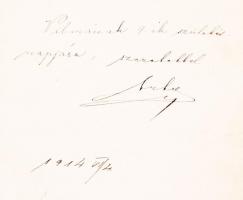 Vilmának 9 ik születés
napjára, szeretettel
1914 VI/4